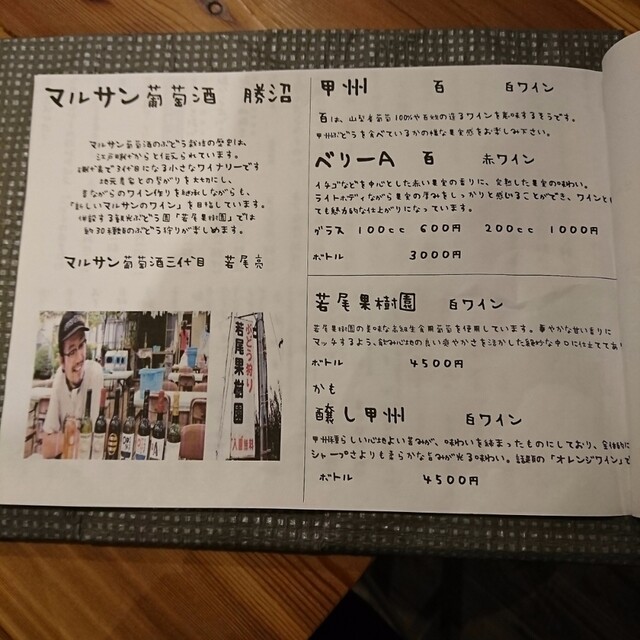 マルサン葡萄酒 勝沼
マルサン葡萄酒のぶどう栽培の歴史は、
江戸時代からと伝えられています。
現代で3代目になる小さなワイナリーです
地元農家との繋がりを大切にし、
昔ながらのワイン作りを継承しながらも、
「新しいマルサンのワイン」を目指しています。
併設する観光ぶどう園「若尾果樹園」では
約30種類のぶどう狩りが楽しめます。
マルサン葡萄酒三代目 若尾亮
ぶどう狩り
若尾果樹園
入園無料
甲州 百 白ワイン
百は、山梨産葡萄100%や百姓の造るワインを意味するそうです。
甲州ぶどうを食べているかの様な果実感をお楽しみ下さい。
ベリーA 百 赤ワイン
イチゴなどを中心とした赤い果実の香りに、完熟した果実の味わい。
ライトボディながら果実の厚みをしっかりと感じることができ、ワインとし
ても魅力的な仕上がりになっています。
グラス 100cc 600円 200cc 1000円
ボトル 3000円
若尾果樹園 白ワイン
若尾果樹園の美味な高級生食用葡萄を使用しています。華やかな甘い香りに
マッチするよう、飲み心地の良い爽やかさを活かした絶妙な中口に仕立ててあり
ボトル 4500円
かも
醸し甲州 白ワイン
甲州種らしい心地よい苦みが、味わいを締まったものにしており、全体的に
シャープさよりも柔らかな旨みが光る味わい。話題の「オレンジワイン」で
ボトル 4500円